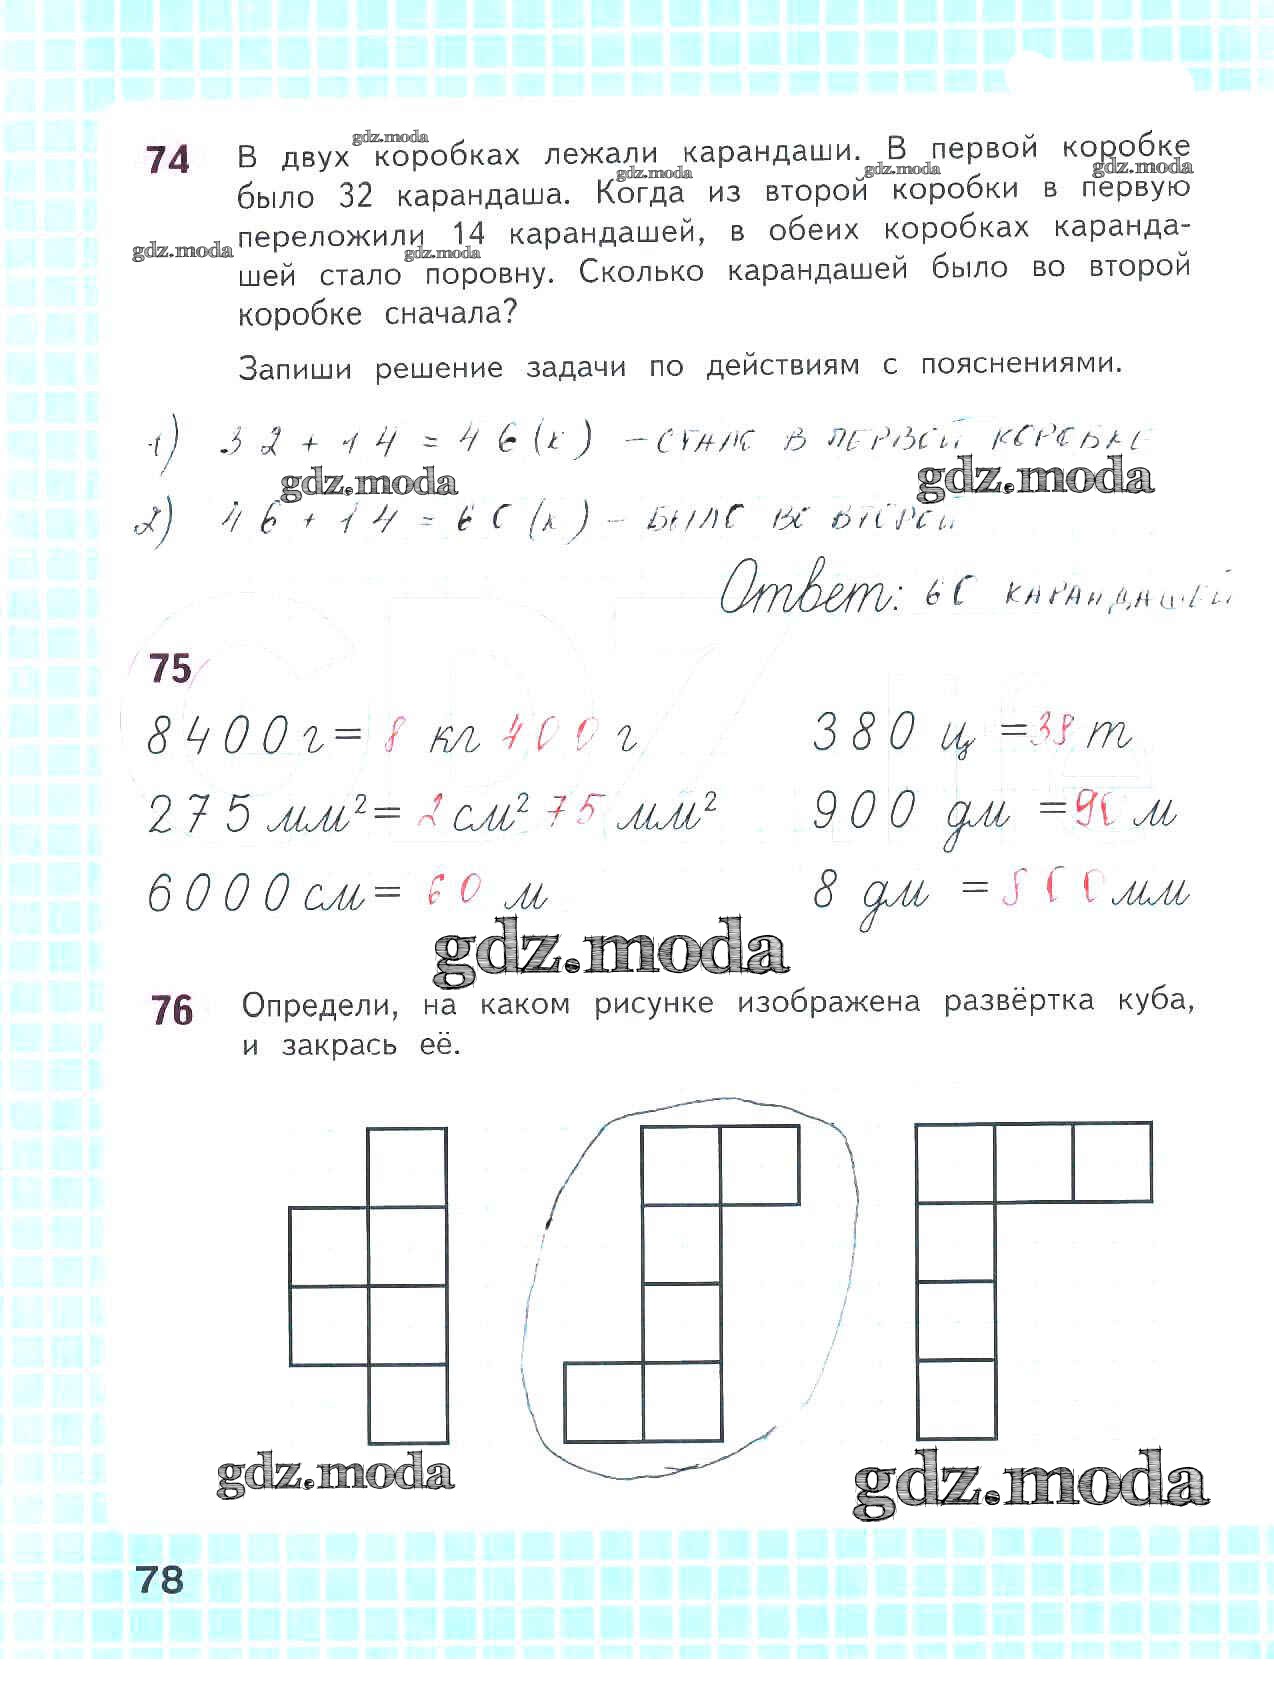 74 В двух коробках лежали карандаши. В первой коробке
было 32 карандаша. Когда из второй коробки в первую
переложили 14 карандашей, в обеих коробках каранда-
шей стало поровну. Сколько карандашей было во второй
коробке сначала?
Запиши решение задачи по действиям с пояснениями.
1) 32 + 14 = 46 (к) – стало в первой коробке
2) 46 + 14 = 60 (к) – было во второй
Ответ: 60 карандашей
75
8400 г = 8 кг 400 г 380 ц = 38 т
275 мм² = 2 см² 75 мм² 900 дм = 90 м
6000 см = 60 м 8 дм = 800 мм
76 Определи, на каком рисунке изображена развёртка куба,
и закрась её.
78
gdz.moda
gdz.moda
gdz.moda
gdz.moda
gdz.moda
gdz.moda
gdz.moda
gdz.moda
gdz.moda
gdz.moda
gdz.moda